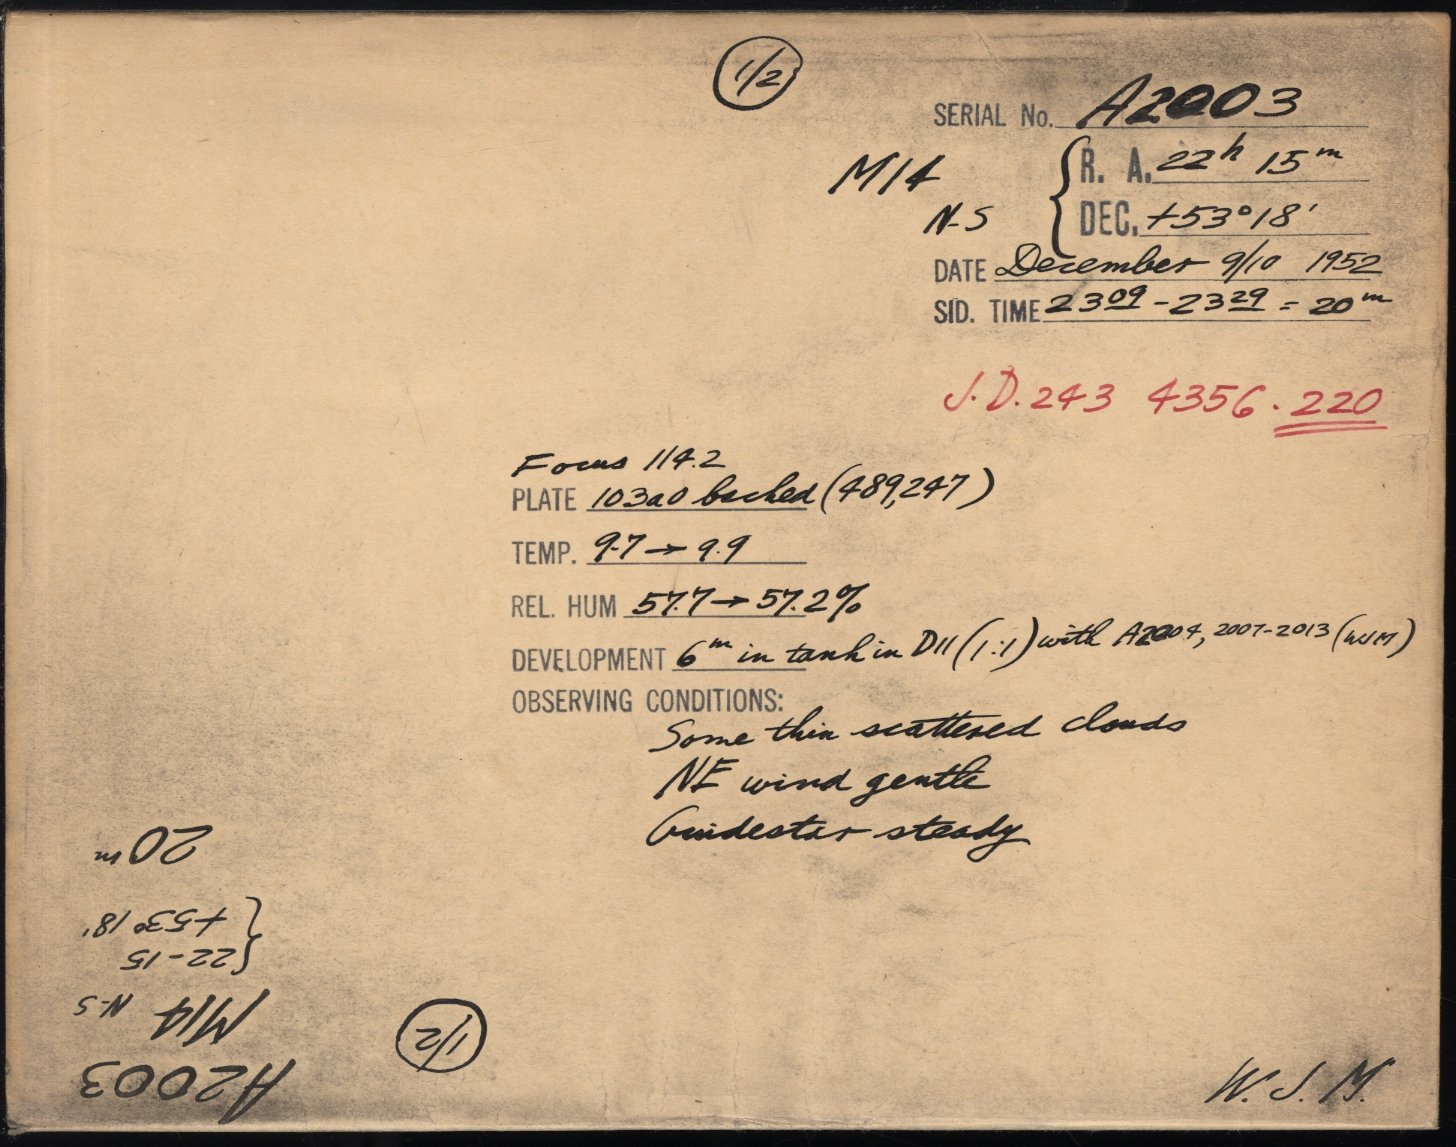 1/2
SERIAL No. A2003
M14
R. A. 22h 15m
N-S
DEC. +53°18'
DATE December 9/10 1952
SID. TIME 2309 - 2329 = 20m
J.D. 243 4356.220
Focus 114.2
PLATE 103a0 backed (489,247)
TEMP. 9.7 → 9.9
REL. HUM 57.7 → 57.2%
DEVELOPMENT 6m in tank in D11 (1:1) with A2004, 2007-2013 (WJM)
OBSERVING CONDITIONS:
Some thin scattered clouds
NE wind gentle
Guidestar steady
W. J. M.
A2003
1/2
M14 N-S
22-15
+53° 18'
20m